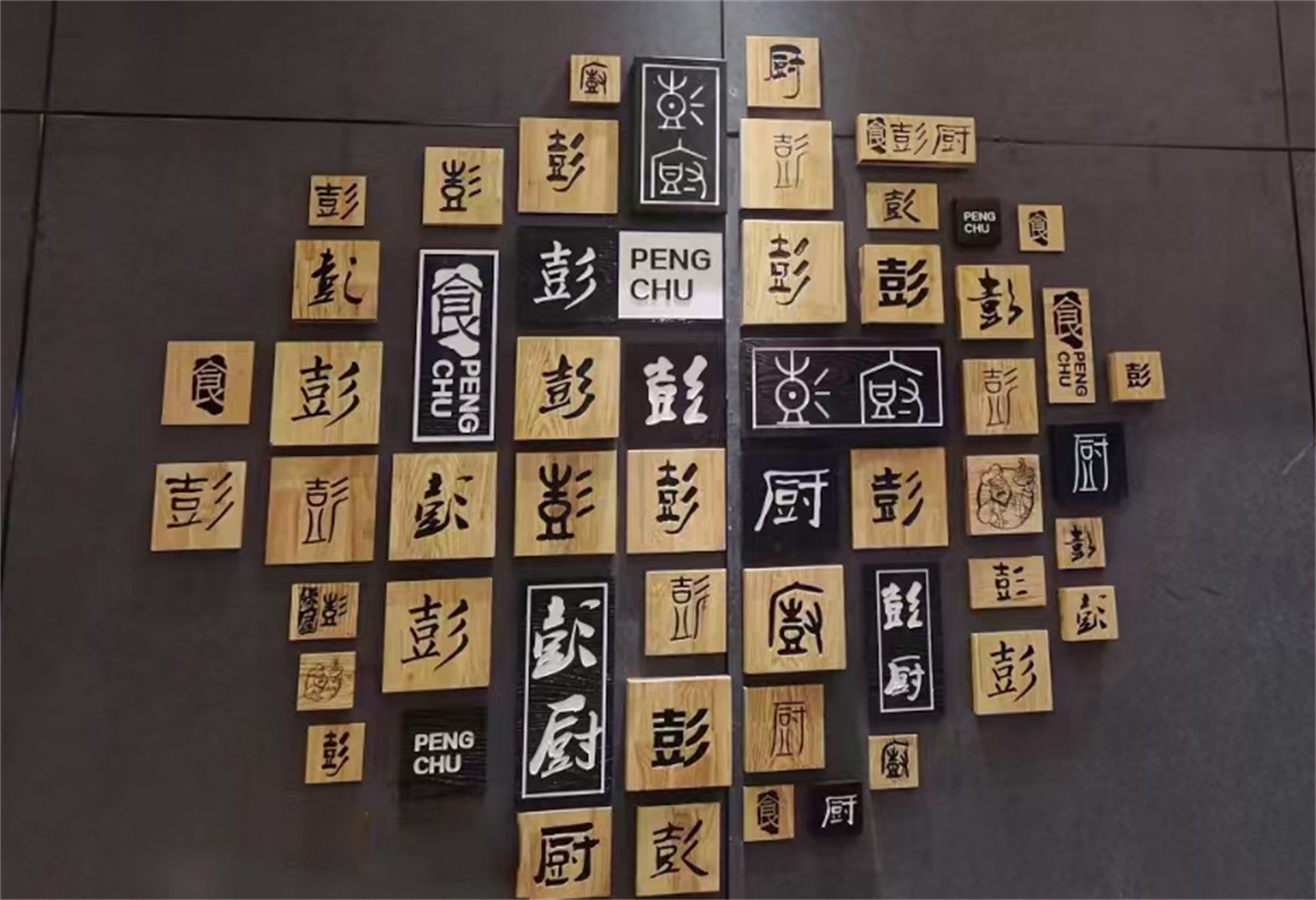 廚
彭廚
厨
彭
彭
彭
彭
食彭厨
彭
PENG
CHU
食
彭
食
PENG
CHU
彭
PENG
CHU
彭
彭
彭
食
PENG
CHU
食
彭
彭
彭
彭廚
彭
彭
彭
彭
彭
彭
彭
厨
彭
厨
彭
彭
彭
彭厨
彭
廚
彭厨
彭
彭
彭
彭
PENG
CHU
彭
厨
廚
食
厨
厨
彭